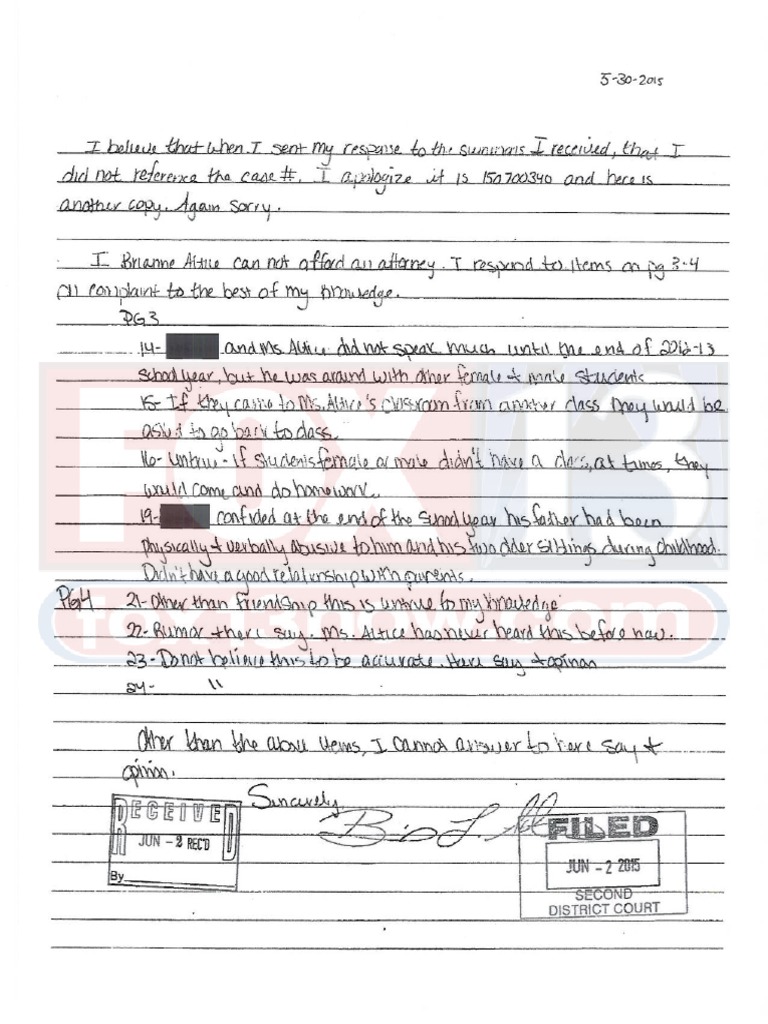 5-30-2015
I believe that when I sent my response to the summons I received, that I
did not reference the case #. I apologize it is 150700340 and here is
another copy. Again sorry.
I Brianne Altice can not afford an attorney. I respond to items on pg 3-4
on complaint to the best of my knowledge.
PG3
14- and Ms. Altice did not speak much until the end of 2012-13
school year, but he was around with other female + male students
15- If they came to Ms. Altice's classroom from another class they would be
asked to go back to class.
16- Untrue - if students female or male didn't have a class, at times, they
would come and do homework.
19- confided at the end of the school year his father had been
physically + verbally abusive to him and his two older siblings during childhood.
Didn't have a good relationship with parents.
PG4 21- Other than friendship this is untrue to my knowledge
22- Rumor + here say. Ms. Altice has never heard this before now.
23- Do not believe this to be accurate. Here say + opinion
24- "
Other than the above items, I cannot answer to here say +
opinion.
Sincerely
RECEIVED
JUN - 2 REC'D
By
FILED
JUN - 2 2015
SECOND
DISTRICT COURT
FOX 13
fox13now.com